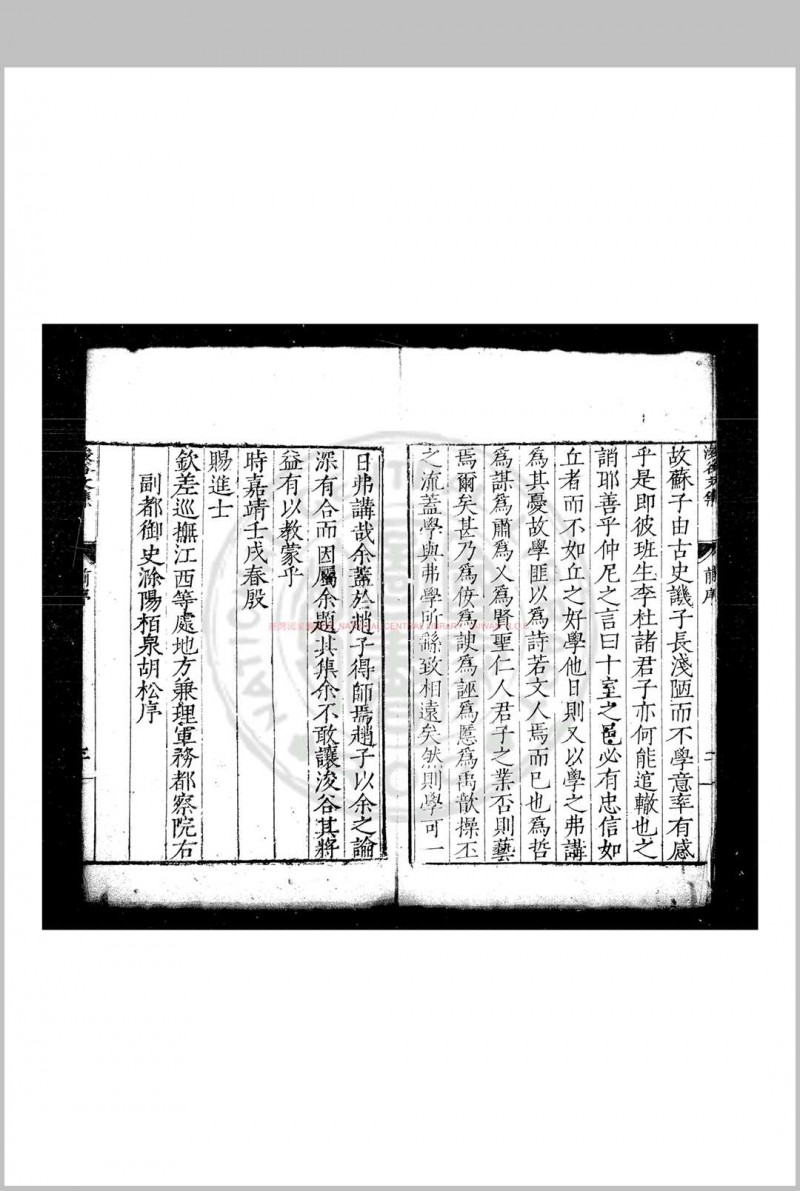 故蘇子由古史譏子長淺陋而不學意率有感
乎是即彼班生李杜諸君子亦何能追轍也之
誚耶善乎仲尼之言曰十室之邑必有忠信如
丘者而不如丘之好學他日則又以學之弗講
為其憂故學匪以為詩若文人焉而已也為哲
為謀為肅為乂為賢聖仁人君子之業否則藝
焉爾矣甚乃為侫為諛為誣為慝為禹歆操丕
之流蓋學與弗學所繇致相遠矣然則學可一
日弗講哉余蓋於趙子得師焉趙子以余之論
深有合而因屬余題其集余不敢讓浚谷其將
益有以教蒙乎
時嘉靖壬戌春殷
賜進士
欽差巡撫江西等處地方兼理軍務都察院右
副都御史滁陽栢泉胡松序
浚谷文集
前序
二
浚谷文集
前序
三